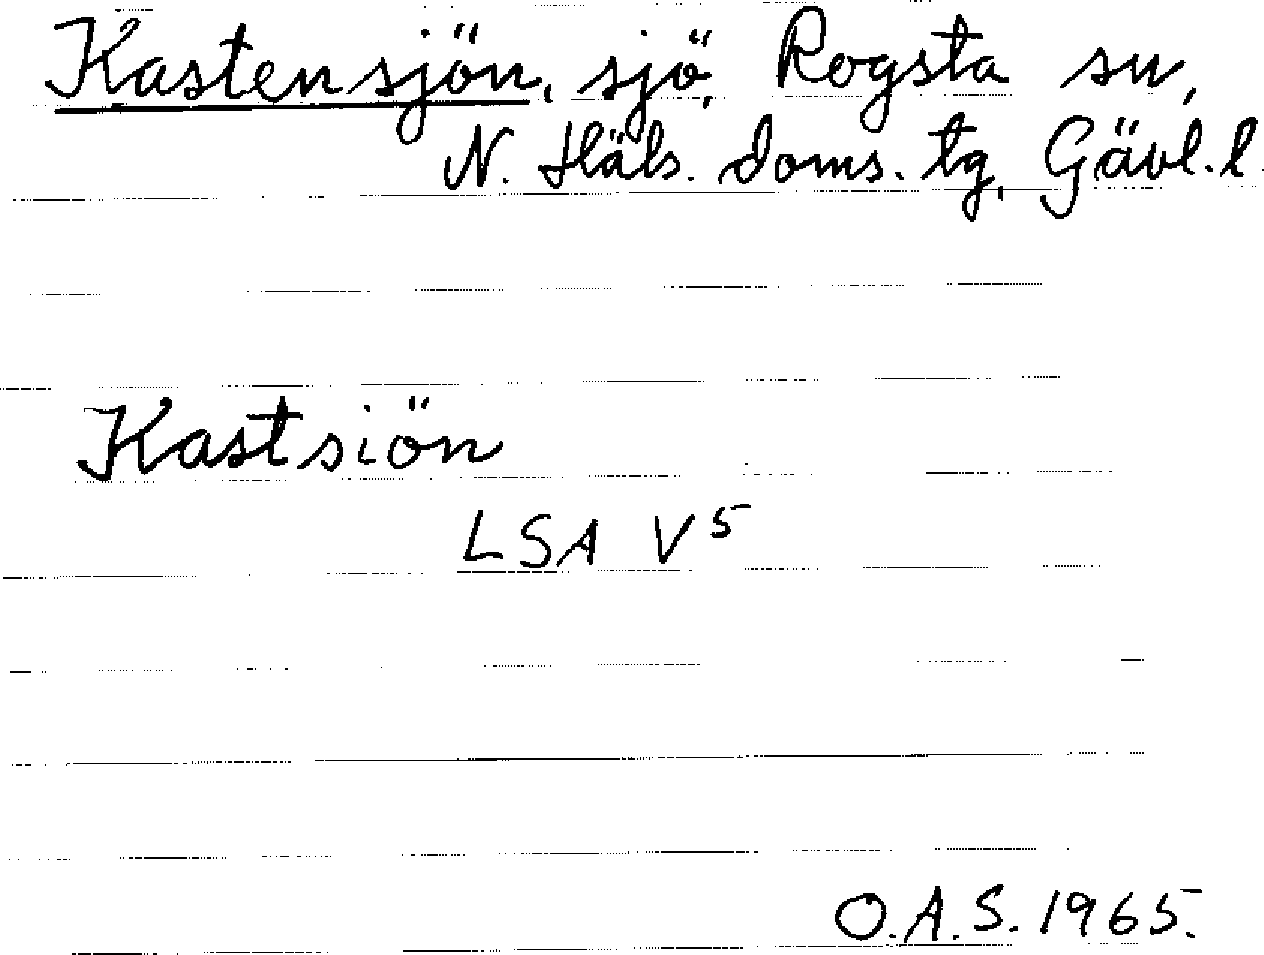 Kastensjön, sjö, Rogsta sn,
N. Häls. doms. tg, Gävl. l.
Kastsiön
LSA V 5
O.A.S. 1965.